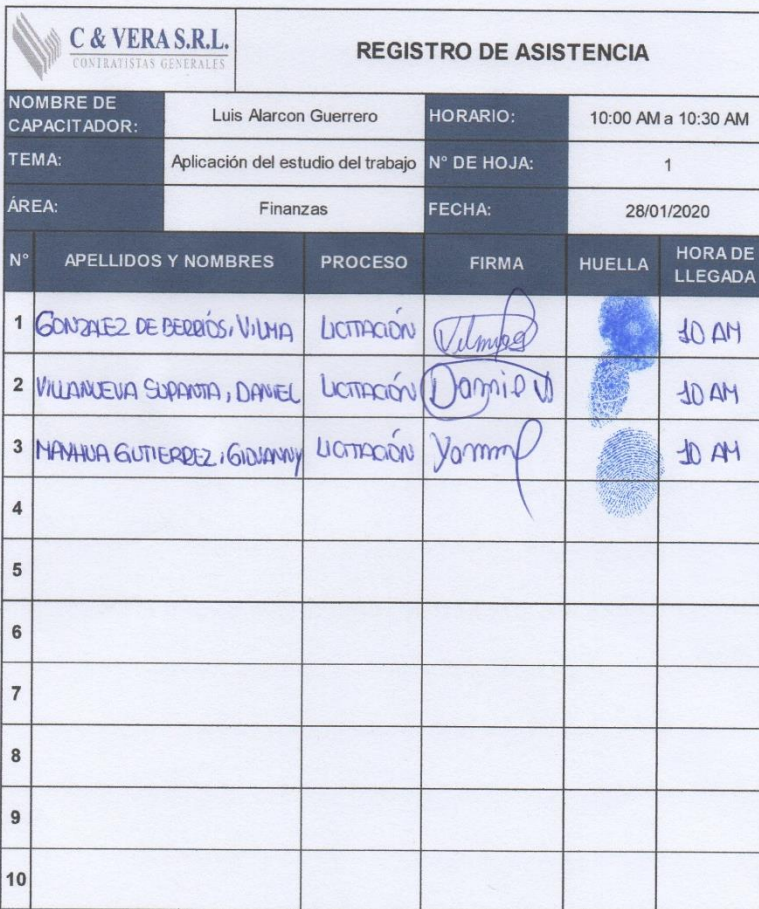 C & VERA S.R.L.
CONTRATISTAS GENERALES
REGISTRO DE ASISTENCIA
NOMBRE DE CAPACITADOR: Luis Alarcon Guerrero HORARIO: 10:00 AM a 10:30 AM
TEMA: Aplicación del estudio del trabajo N° DE HOJA: 1
ÁREA: Finanzas FECHA: 28/01/2020
N° APELLIDOS Y NOMBRES PROCESO FIRMA HUELLA HORA DE LLEGADA
1 GONZALEZ DE BERRÍOS, VILMA LICITACIÓN 10 AM
2 VILLANUEVA SUPANTA, DANIEL LICITACIÓN 10 AM
3 MANHUA GUTIERREZ, GIOVANNY LICITACIÓN 10 AM
4
5
6
7
8
9
10